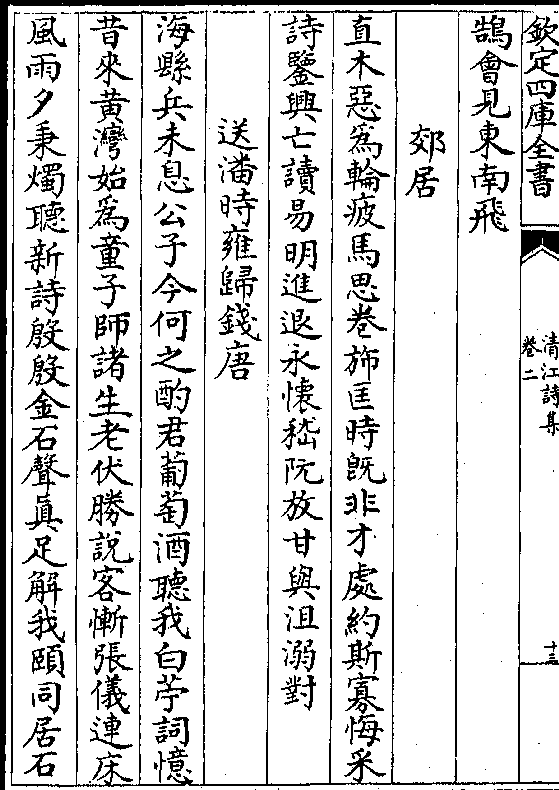 欽定四庫全書
清江詩集
卷二
十三
鵠會見東南飛
郊居
直木惡為輪疲馬思卷斾匡時既非才處約斯寡悔采
詩鑒興亡讀易明進退永懐嵇阮放甘與沮溺對
送潘時雍歸錢唐
海縣兵未息公子今何之酌君葡萄酒聽我白苧詞憶
昔來黄灣始為童子師諸生老伏勝說客慚張儀連床
風雨夕秉燭聽新詩殷殷金石聲真足解我頤同居石